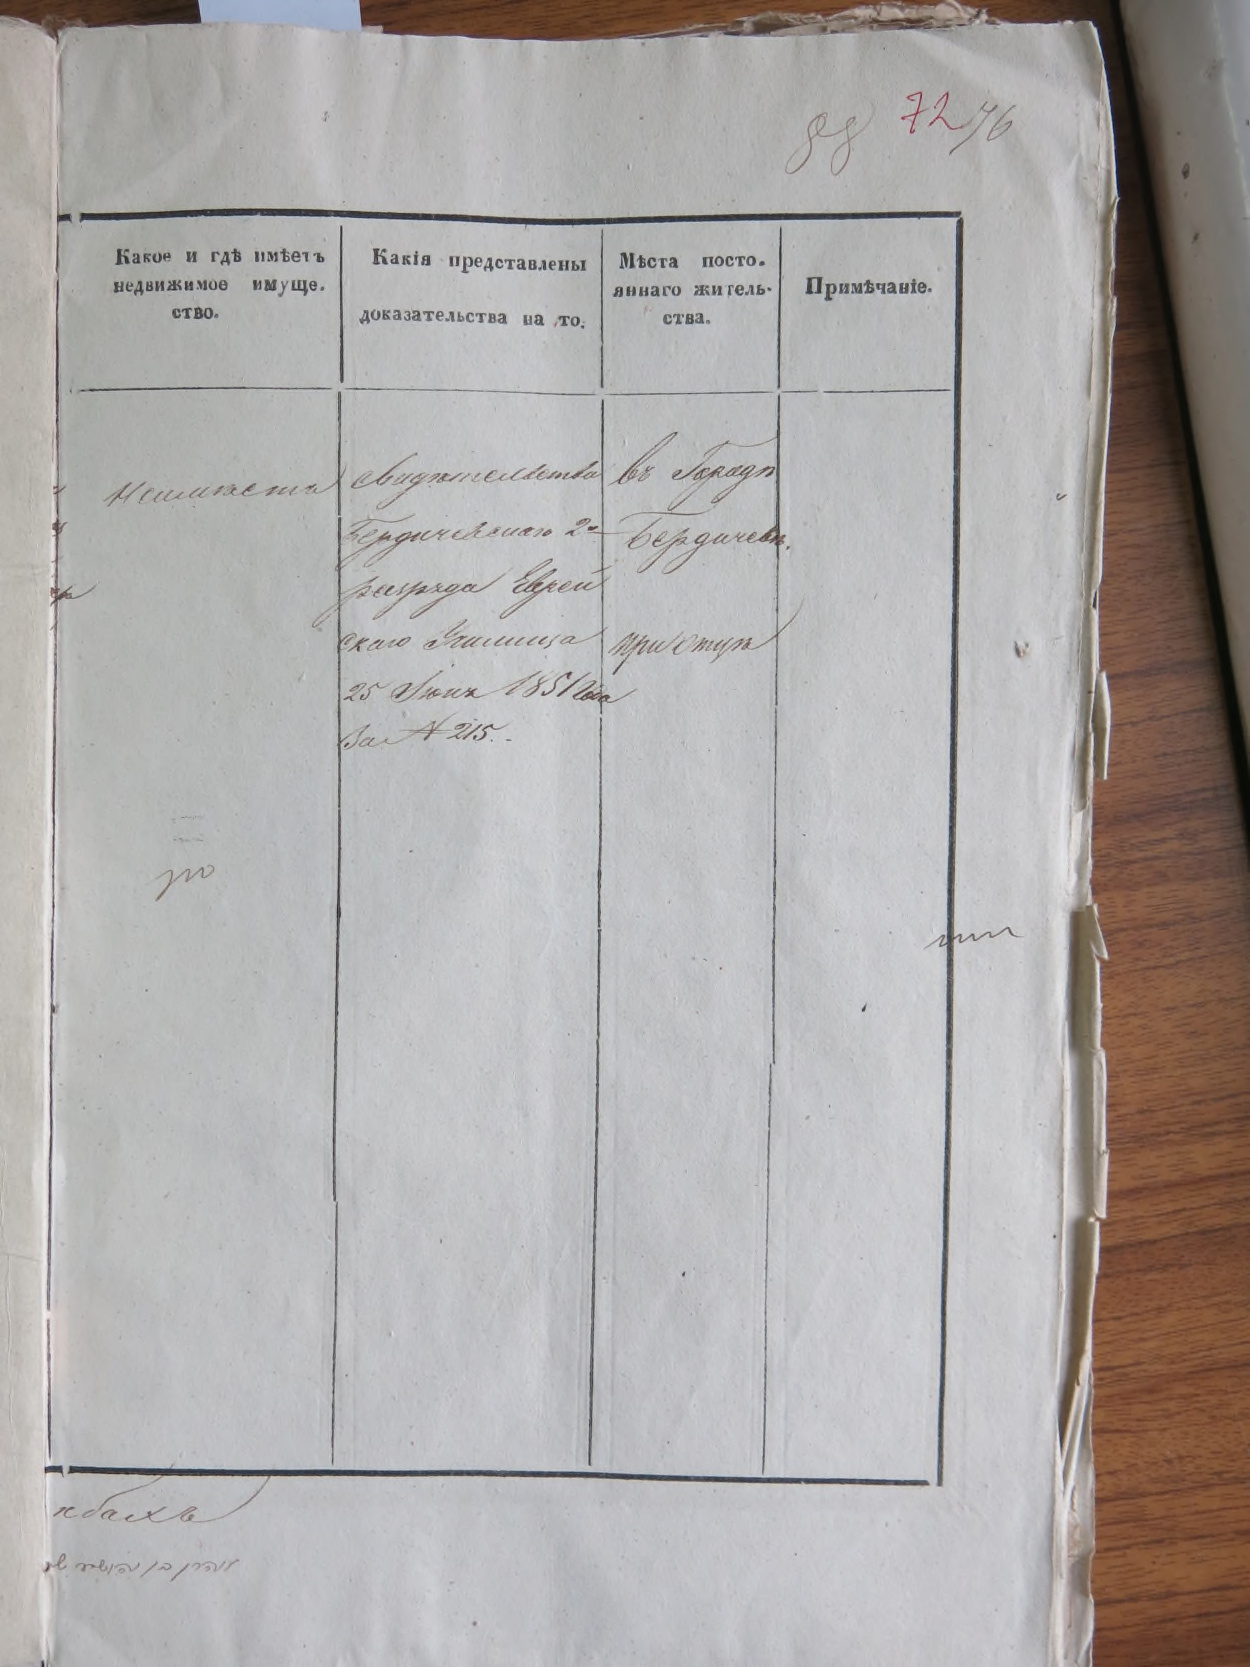 88 72 76
Какое и гдѣ имѣетъ
недвижимое имуще-
ство.
Какія представлены
доказательства на то.
Мѣста посто-
яннаго житель-
ства.
Примѣчаніе.
Неимѣетъ
свидѣтельства
Бердичевскаго 2го
разряда Еврей
скаго Училища
25 Іюня 1851 года
За N 215.
въ Городѣ
Бердичевѣ.
при отцѣ